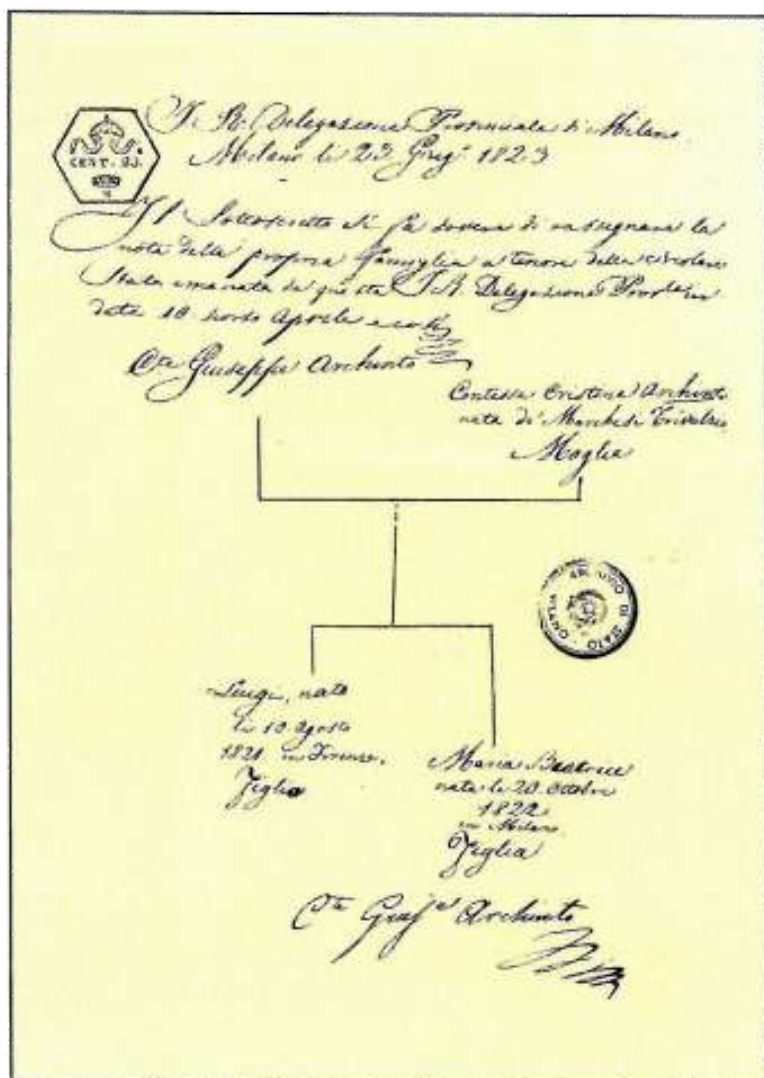 I. R. Delegazione Provinciale di Milano
Milano li 23 Giug.º 1823
CENT. 30.
Il Sottoscritto si fa dovere di rassegnare la
nota della propria famiglia a tenore della circolare
stata emanata da questa I. R. Delegazione Provle in
data 10 scorso Aprile
Cte Giuseppe Archinto
Contessa Cristina Archinto
nata de' Marchesi Trivulzio
Moglie
ARCHIVIO DI STATO MILANO
Luigi, nato
li 10 agosto
1821 in Firenze.
Figlio
Maria Beatrice
nata li 20 Ottobre
1822
in Milano
Figlia
Cte Gius.e Archinto